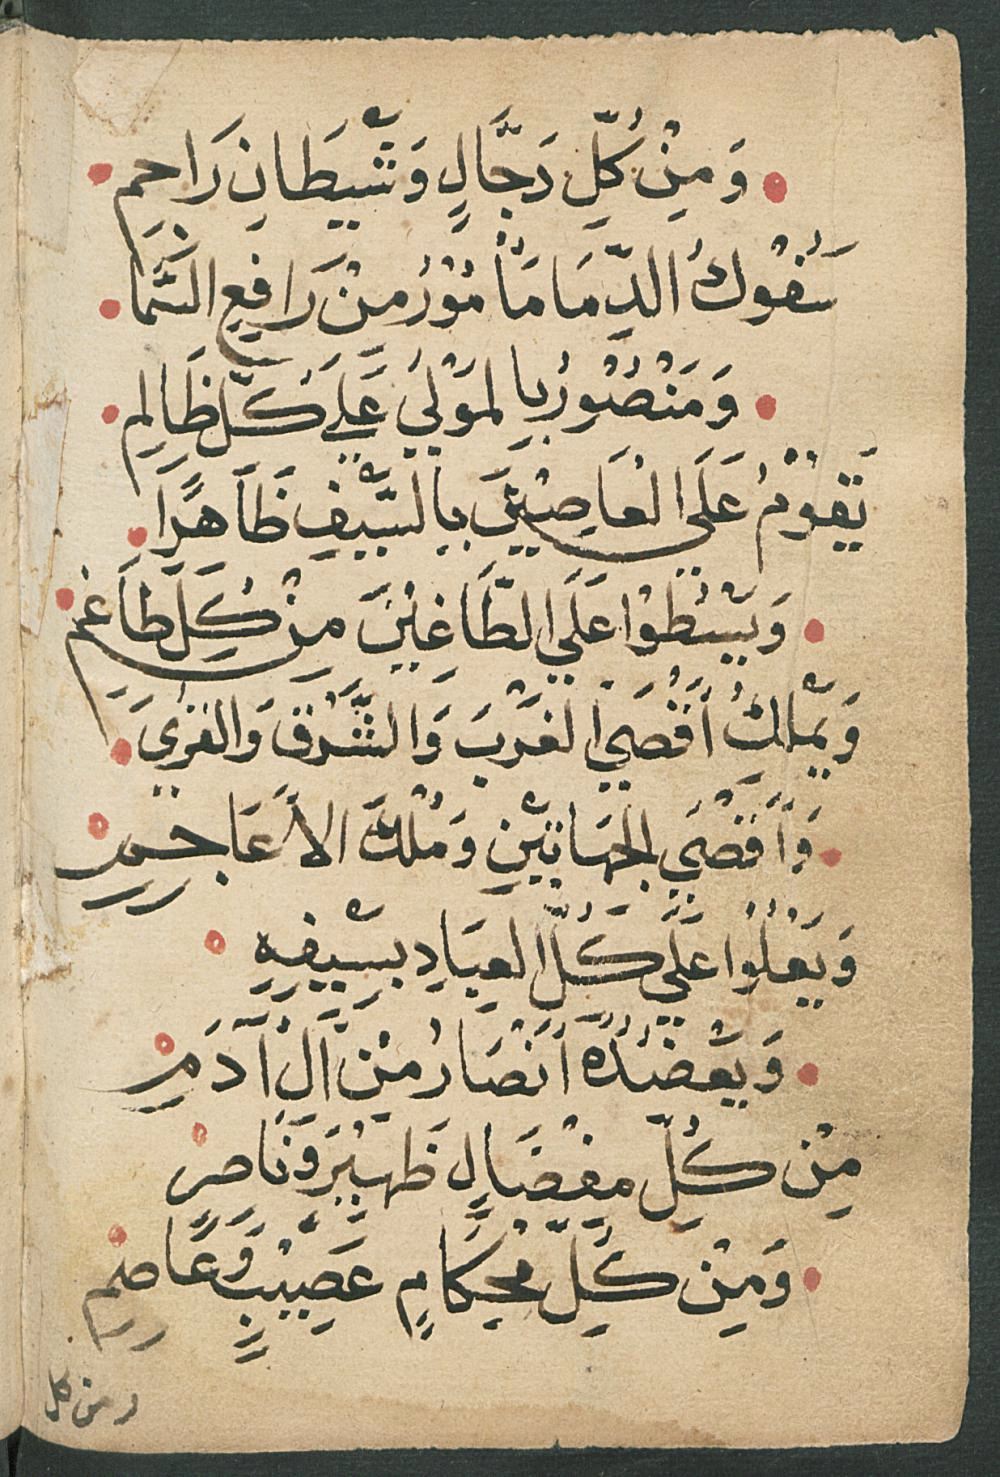 وَمِنْ كُلِّ دَجَّالٍ وَشَيْطَانٍ رَاجِمِ
سَفُوكُ الدِّمَا مَأْمُوْرُ مِنْ رَافِعِ السَّمَا
وَمَنْصُوْرُ بِالمَوْلَي عَلَي كُلِّ ظَالِمِ
يَقُوْمُ عَلَي العَاصِيْنَ بِالسَّيْفِ ظَاهِرًا
وَيَسْطُوا عَلَي الطَّاغِيْنَ مِنْ كُلِّ طَاغِمِ
وَيَمْلِكُ أَقْصَي الغَرْبِ وَالشَّرْقِ وَالقُرَي
وَأَقْصَي الجِهَاتَيْنِ وَمُلْكَ الأَعَاجِمِ
وَيَعْلُوا عَلَي كُلِّ العِبَادِ بِسَيْفِهِ
وَيَعْضُدُهُ أَنْصَارُ مِنْ آلِ آدَمِ
مِنْ كُلِّ مِفْضَالٍ ظَهِيْرٍ وَنَاصِرْ
وَمِنْ كُلِّ مِحْكَامٍ عَصِيْبٍ وَعَاصِمِ
ومن كل